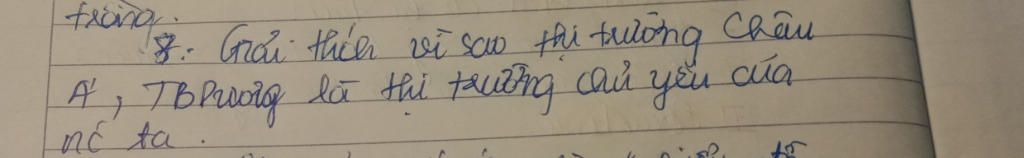 trường.
8. Giải thích vì sao thị trường Châu
Á, TBDương là thị trường chủ yếu của
nc ta.